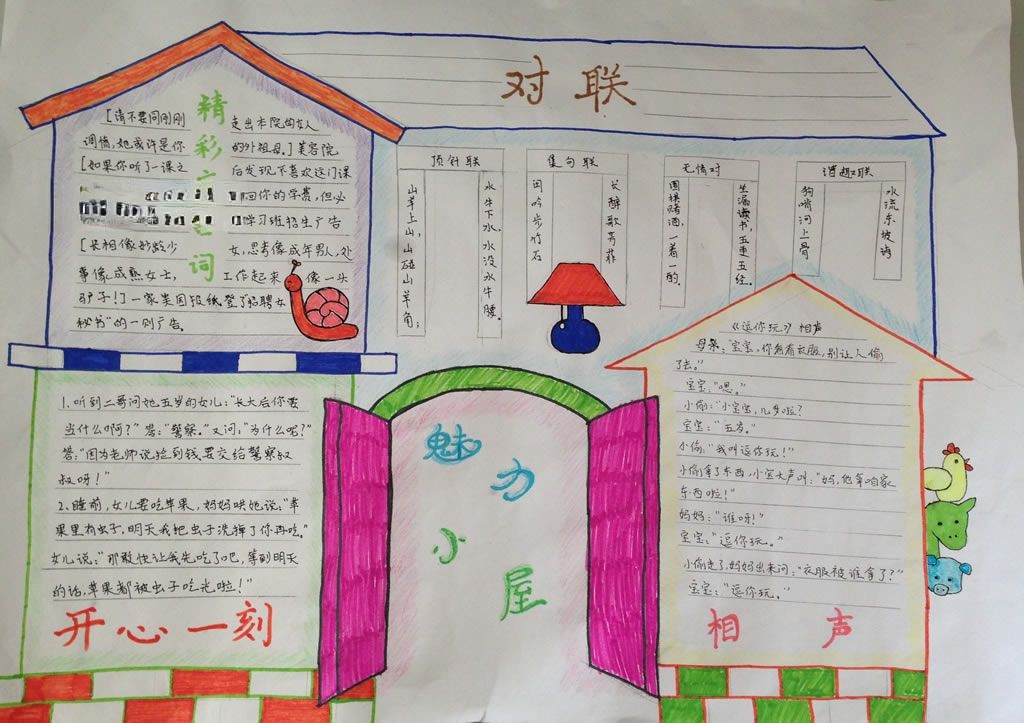 对联
精彩广告词
[请不要同刚刚走出本院的女人
调情,她或许是你的外祖母。]美容院
[如果你听了一课之后发现不喜欢这门课
回你的学费,但必
学习班招生广告
[长相像妙龄少女,思考像成年男人,处
事像成熟女士,工作起来像一头
驴子!]一家美国报纸登了招聘女
秘书"的一则广告。
顶针联
水牛下水,水没水牛腰。
山羊上山,山碰山羊角;
集句联
长醉歌芳菲
闲吟步竹石
无情对
生漏读书,五更五经。
围棋赌酒,一着一酌。
谐趣联
水流东坡诗
狗啃河上骨
《逗你玩》相声
母亲:"宝宝,你看着衣服,别让人偷
了去。"
宝宝:"嗯。"
小偷:"小宝宝,几岁啦?
宝宝:"五岁。"
小偷:"我叫逗你玩!"
小偷拿了东西,小宝大声叫:"妈,他拿咱家
东西啦!"
妈妈:"谁呀!"
宝宝:"逗你玩。"
小偷走了,妈妈出来问:"衣服被谁拿了?"
宝宝:"逗你玩。"
相声
1、听到二哥问她五岁的女儿:"长大后你要
当什么啊?"答:"警察。"又问:"为什么呢?"
答:"因为老师说捡到钱要交给警察叔
叔呀!"
2、睡前,女儿要吃苹果,妈妈哄她说:"苹
果里有虫子,明天我把虫子洗掉了你再吃。"
女儿说:"那敢快让我先吃了吧,等到明天
的话,苹果都被虫子吃光啦!"
开心一刻
魅力小屋